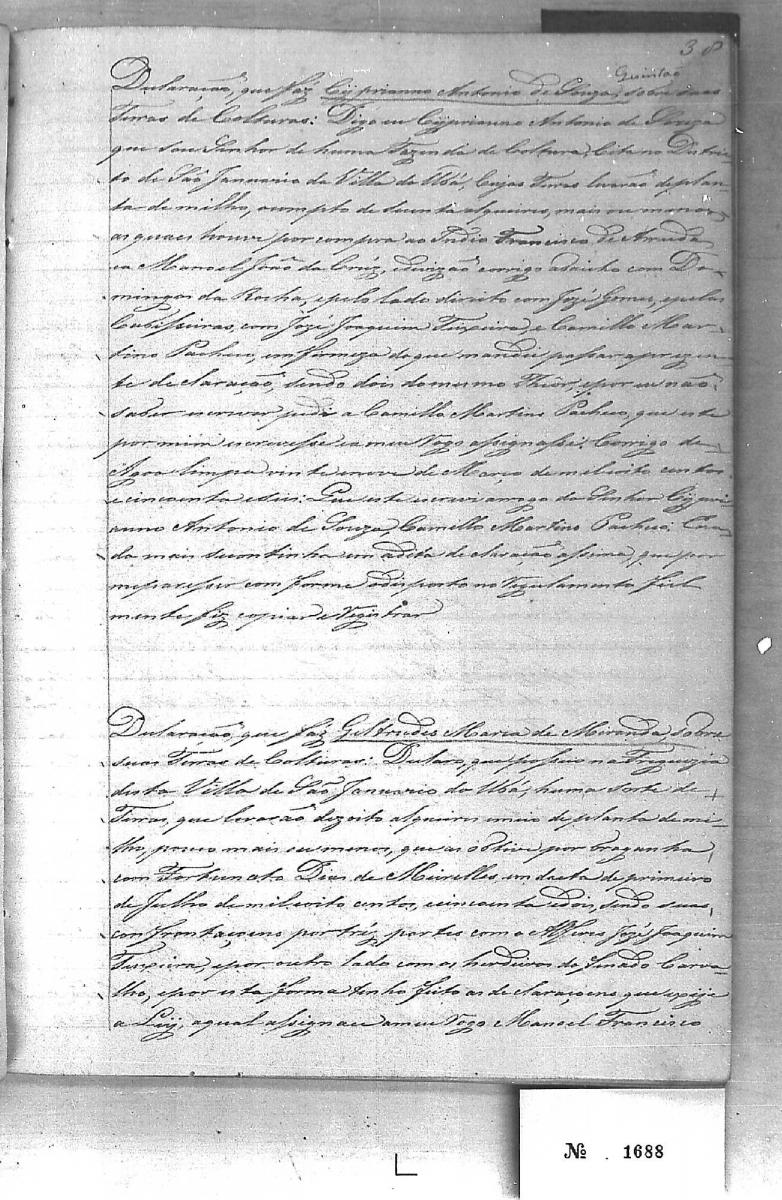 38
Quintão
Declaração, que faz Cyprianno Antonio de Souza, sobre suas
Terras de Colturas: Digo eu Cyprianno Antonio de Souza
que sou Senhor de huma Fazenda de Coltura, Cita no Distri-
to de São Januario da Villa do Ubá, Cujas Terras levarão de plan-
ta de milho, o compto de secenta alqueires, mais ou menos
as quaes houve por compra ao Indio Francisco de Arruda
ea Manoel João da Crúz, edivizão corrigo abaicho com Do-
mingos da Rocha, epelo lado direito com Jozé Gomes, epelas
Cabisseiras, com Jozé Joaquim Teixeira, e Camillo Mar-
tins Pacheco, em firmeza de que mandei passar aprezen-
te declaração, sendo dois do mesmo Theôr, epor eu não
saber escrever pedi a Camillo Martins Pacheco, que este
por mim escrevesse ea meu Rogo assignasse: Corrigo de
Agoa Limpa vinte enove de Março de mil oito centos
e cincoenta eseis: Que este escrevi arrogo do Senhor Cypri-
anno Antonio de Souza, Camillo Martins Pacheco:
da mais secontinha em adita declaração assima, que por
meparesser com forme odisposto no Regulamento fiel
mente fiz copiar e Registrar
Declaração, que faz Geltrudes Maria de Miranda, sobre
suas Terras de Colturas: Declaro, que possuo na Freguezia
desta Villa de São Januario do Ubá, huma sorte de
Terras, que levarão dezoito alqueires emeio de planta de mi-
lho, pouco mais ou menos, que as obtive por braganha
com Fortunato Dias de Meirelles, em data de primeiro
de Julho de mil oito centos, ecincoenta edois, sendo suas
confrontaçoens por tréz partes com o Alferes Jozé Joaquim
Teixeira, epor outro lado com os herdeiros do Finado Carva-
lho, epor esta forma tenho feito as declaraçoens que exije
a Ley, aqual assignao ameu Rogo Manoel Francisco
Nº. 1688